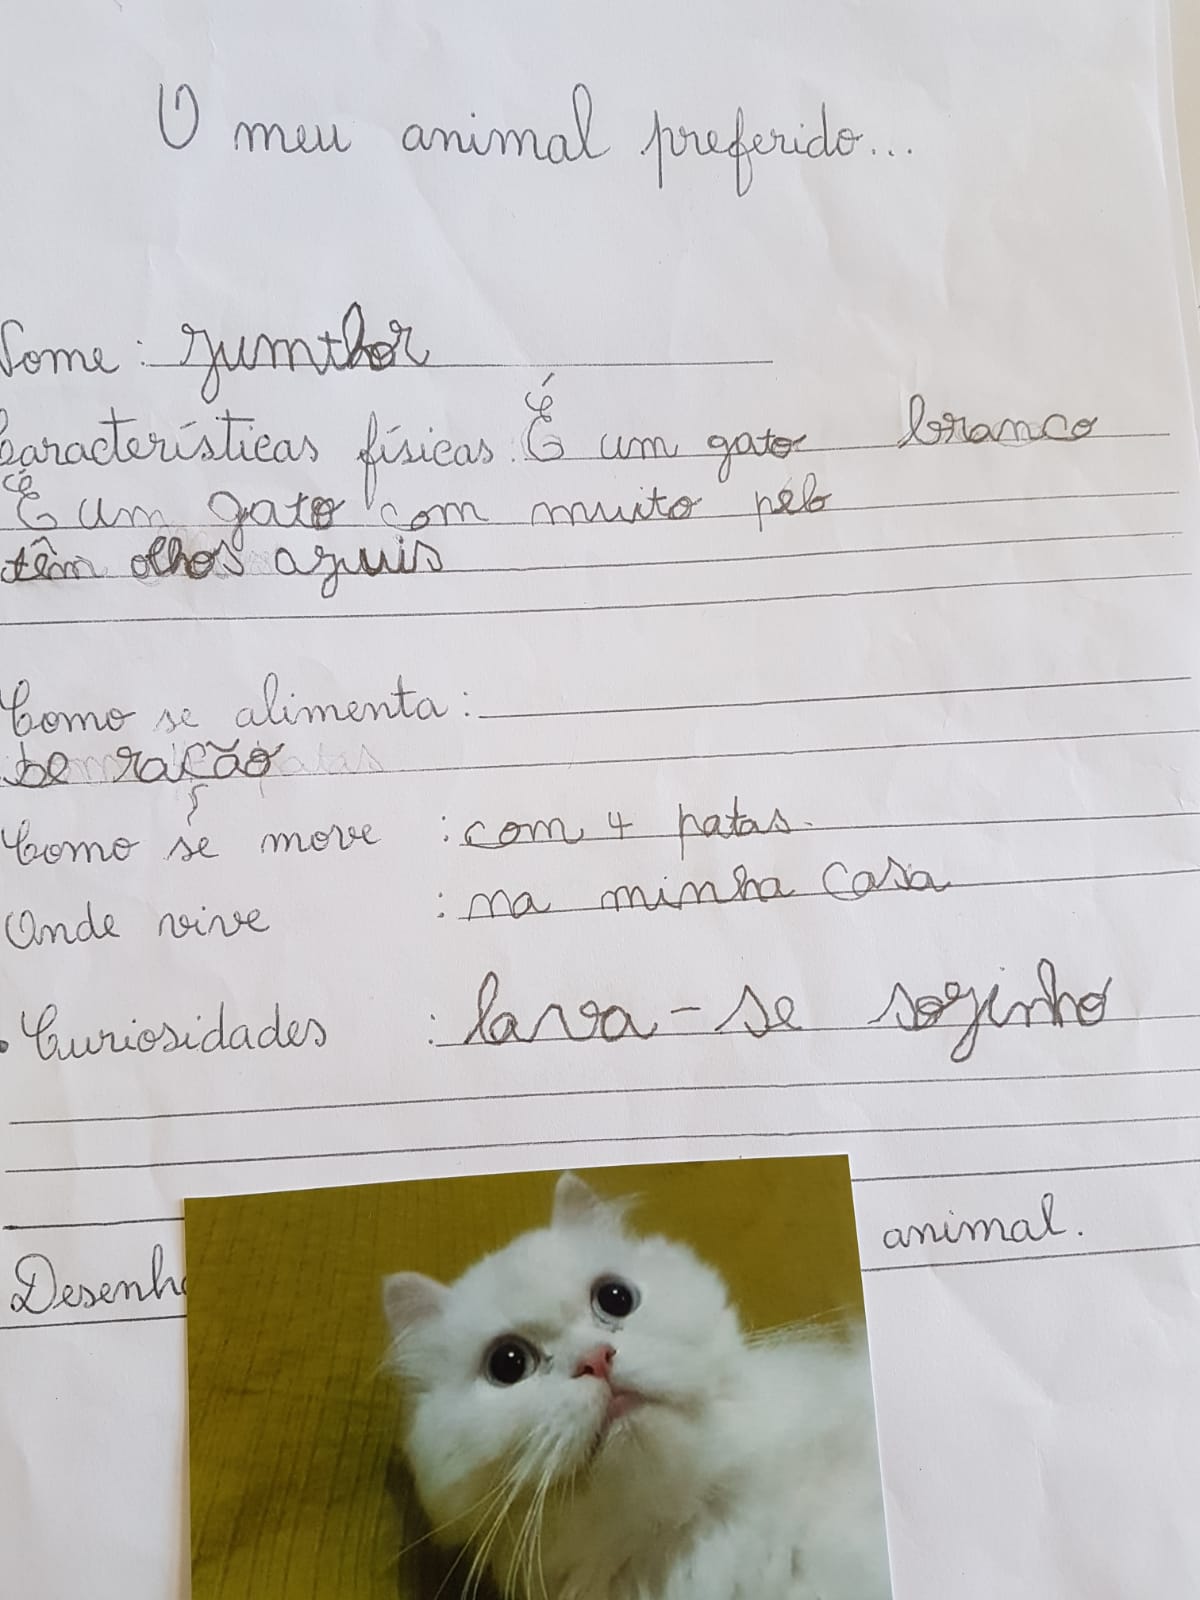 O meu animal preferido...
Nome: zumthor
Características físicas: É um gato branco
É um gato com muito pelo
têm olhos azuis
Como se alimenta:
De ração
Como se move : com 4 patas.
Onde vive : na minha casa
• Curiosidades : lava-se sozinho
Desenh animal.